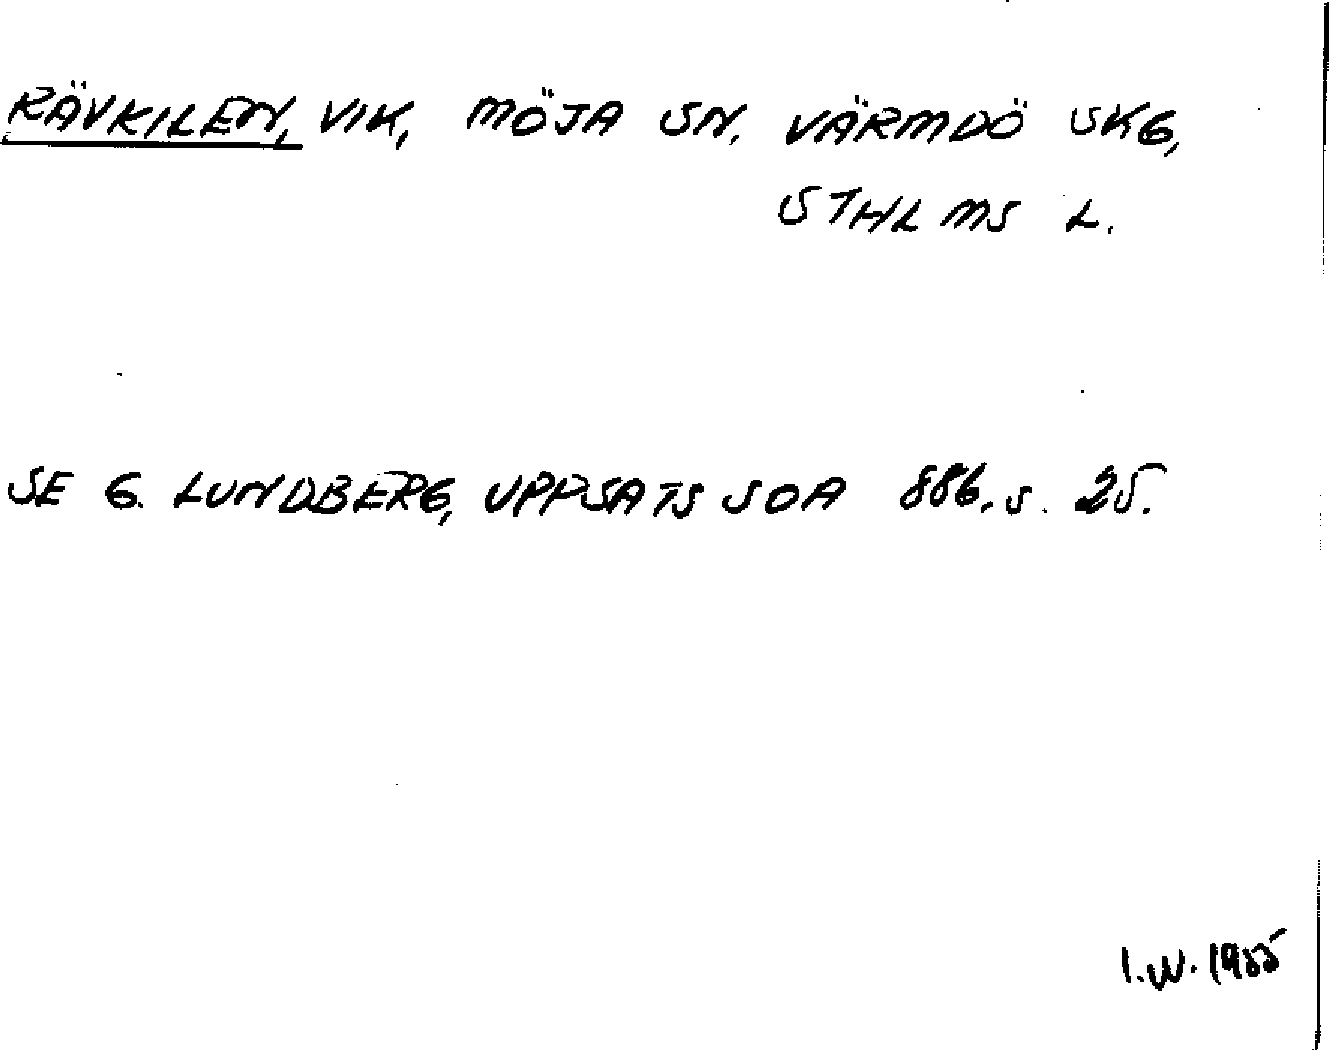 RÄVKILEN, VIK, MÖJA SN. VÄRMDÖ SKG,
STHLMS L.
SE G. LUNDBERG, UPPSATS SOA 886. S. 25.
I.W. 1955